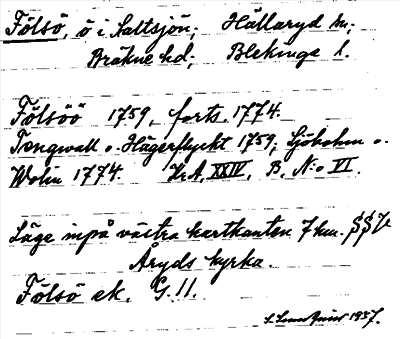 Fölsö, ö i Saltsjön; Hällaryd sn;
Bräkne hd; Blekinge l.
Fölsöö 1759, forts. 1774.
Tengwall o. Hägerflyckt 1759; Sjöholm o.
Wolin 1774. Kr.A. XXIV, B, N:o VI.
Läge inpå västra kartkanten 7 km. SSV
Åryds kyrka.
Fölsö ek. G. 11.
1937.